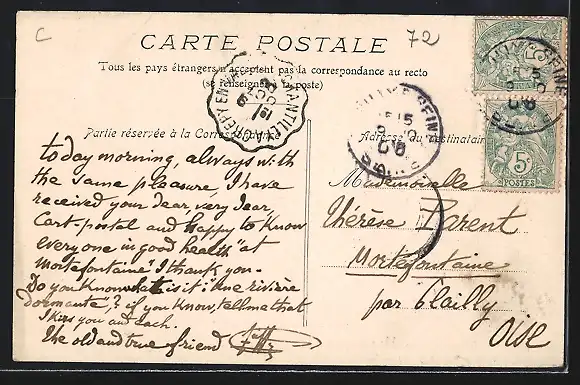 C
72
CARTE POSTALE
Tous les pays étrangers n'acceptent pas la correspondance au recto
(se renseigner à la poste)
Partie réservée à la Correspondance
Adresse du Destinataire
today morning, always with
the same pleasure, I have
received your dear, very dear,
Cart-postal and happy to Know
everyone in good health "at
Mortefontaine" I thank you.
Do you Know what is it: "Une rivière
dormante",? if you Know, tell me that
I kiss you and each.
The old and true friend
Mademoiselle
Thérèse Parent
Mortefontaine
par Plailly
Oise
5c
POSTES